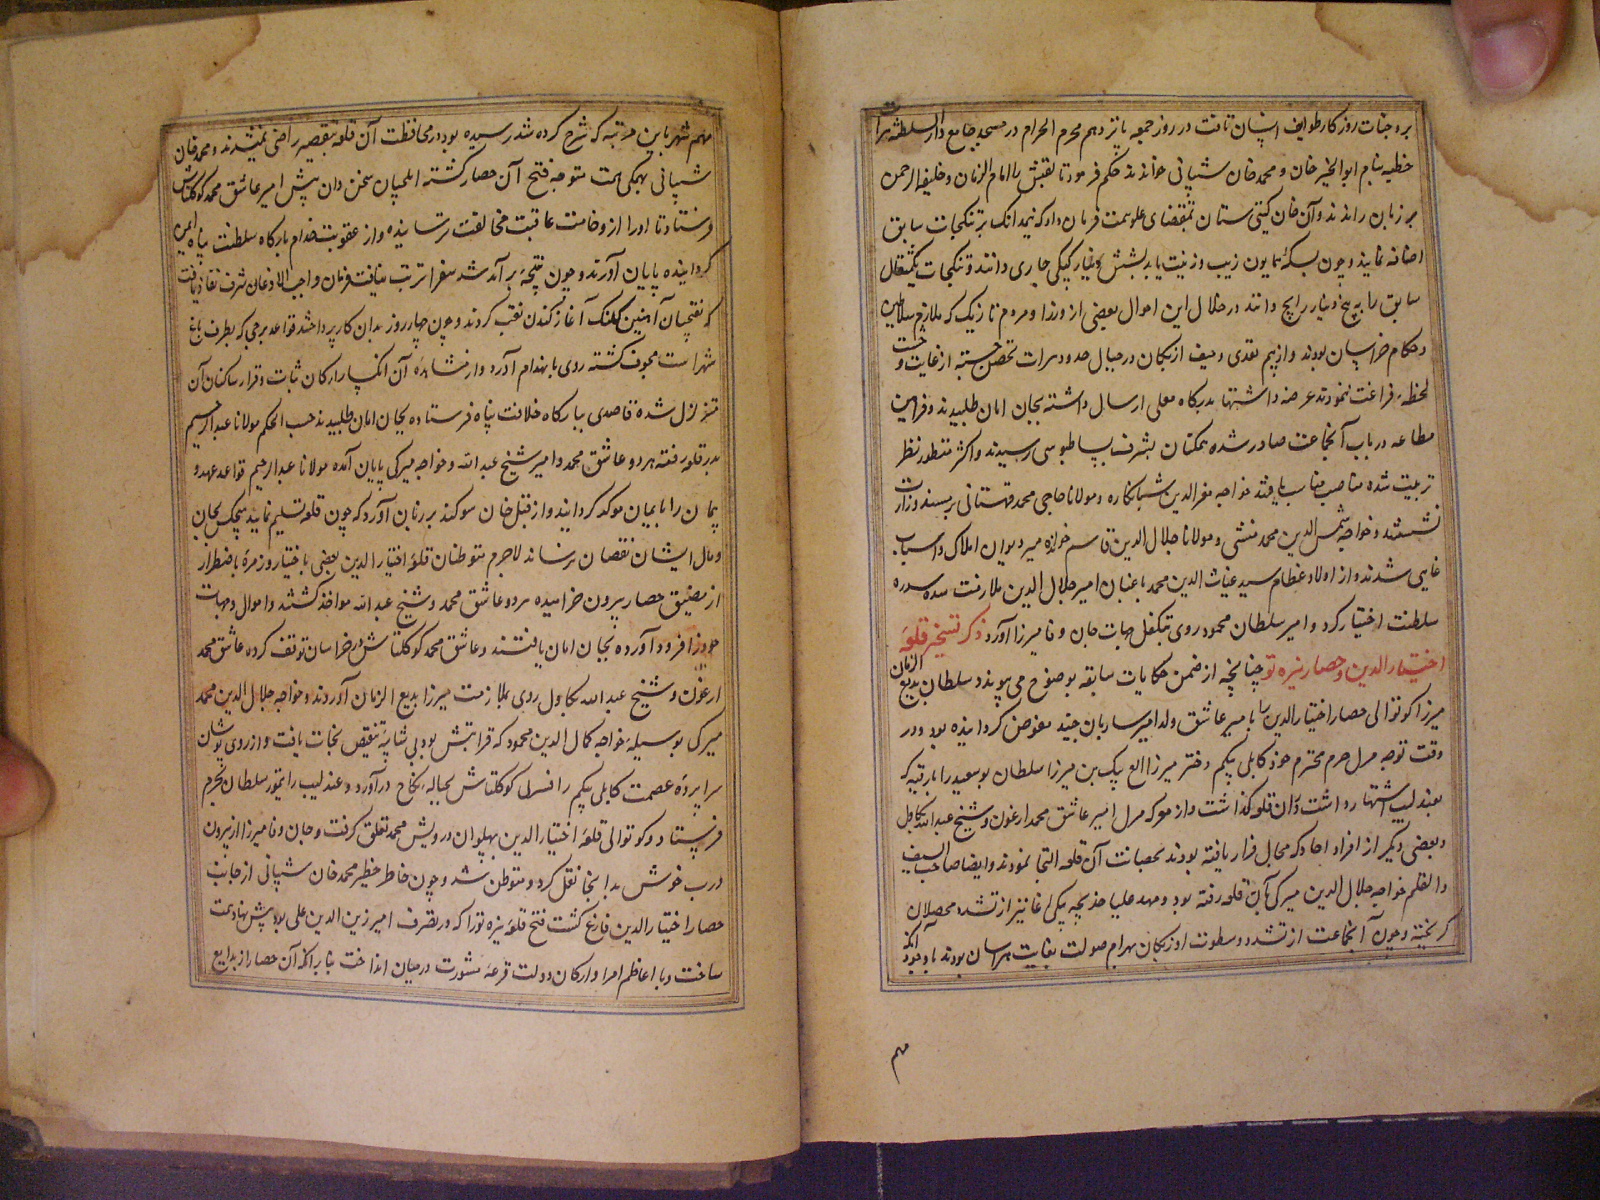 بر وجنات روزکار طوایف انسان تافت در روز جمعه پانزدهم محرم الحرام در مسجد جامع دار السلطنه هرا
خطبه بنام ابوالخیر خان و محمد خان شیبانی خواندند حکم فرمود تا لقبش را امام الزمان و خلیفه الرحمن
بر زبان راندند و آن خان کیتی ستان بمقتضای علو همت فرمان داد که نیمدانک بر تنکجات سابق
اضافه نمایند و چون بسکه همایون زیب و زینت یابد بشش دینار کپکی جاری دانند و تنکجات یکمثقال
سابق را به پنج دینار رایج دانند در خلال این احوال بعضی از وزرا و مردم تازیک که ملازم سلاطین
و حکام خراسان بودند و از بیم تعدی و حیف ازبکان در جبال حدود هرات تحصن جسته از غایت وحشت
لحظهٔ فراغت نمودند عرضه داشتها بدرکاه معلی ارسال داشته بجان امان طلبیدند و فرامین
مطاعه در باب آنجماعت صادر شده همکنان بشرف بساطبوسی رسیدند و اکثر منظور نظر
تربیت شده مناصب مناسب یافتند خواجه مظفر الدین شبانکاره و مولانا حاجی محمد قهستانی بر مسند وزارت
نشستند و خواجه شمس الدین محمد منشی و مولانا جلال الدین قاسم خوانده میر دیوان املاک و اسباب
غایبی شدند و از اولاد عظام سید غیاث الدین محمد باغبان امیر جلال الدین ملازمت سده سدره
سلطنت اختیار کرد و امیر سلطان محمود روی بتکفل مهات جان وفا میرزا آورد ذکر تسخیر قلعهٔ
اختیار الدین و حصار نیره تو چنانچه از ضمن حکایات سابقه بوضوح می پیوندد سلطان بدیع الزمان
میرزا کوتوالی حصار اختیار الدین را بامیر عاشق ولد امیر ساربان جنید مفوض کردانیده بود و در
وقت توجه مرل حرم محترم خود کابلی بیکم دختر میرزا الغ بیک بن میرزا سلطان بو سعید را با رقیه که
بعندلیب اشتهار داشت در آن قلعه کذاشت و از معرکه مرل امیر عاشق محمد ارغون و شیخ عبدالله بکاول
و بعضی دیکر از افراد احاد که مجال فرار یافته بودند بحصانت آن قلعه التجا نمودند و ایضا صاحب السیف
والقلم خواجه جلال الدین میرکی بآن قلعه رفته بود و مهد علیا خدیجه بیکی آغا نیز از تشدد محصلان
کریخته و چون آنجماعت از تشدد و سطوت اوزبکان بهرام صولت بغایت هراسان بودند با وجود آنکه
مهم
مهم شهر باین مرتبه که شرح کرده شد رسیده بود در محافظت آن قلعه بتقصیر راضی نمیشدند و محمد خان
شیبانی همکی همت متوجه فتح آن حصار کشته ایلچیان سخن دان پیش امیر عاشق محمد کوکلتاش
فرستاد تا او را از وخامت عاقبت مخالفت ترسانیده و از عقوبت خدام بارکاه سلطنت پناه ایمن
کردانیده پایان آورند و چون نتیجهٔ بر آمد شد سفرا ترتب نیافت فرمان واجب الاذعان شرف نفاذ یافت
که نقبچیان آهنین کلنک آغاز کندن نقب کردند و چون چهار روز بدان کار پرداختند قواعد برجی که بطرف باغ
شهر است مجوف کشته روی بانهدام آورد و از مشاهدهٔ آن انکسار ارکان ثبات و قرار ساکنان آن
متزلزل شده قاصدی ببارکاه خلافت پناه فرستاده بجان امان طلبیدند حسب الحکم مولانا عبدالرحیم
بدر قلعه رفته هر دو عاشق محمد و امیر شیخ عبدالله و خواجه میرکی پایان آمده مولانا عبدالرحیم قواعد عهد و
پیمان را بایمان موکد کردانید و از قبل خان سوکند بر زبان آورد که چون قلعه تسلیم نمایند هیچکس بجان
و مال ایشان نقصان نرساند لاجرم متوطنان قلعه اختیار الدین بعضی باختیار و زمره باضطرار
از مضیق حصار بیرون خرامیده هر دو عاشق محمد و شیخ عبدالله مواخذ کشتند و اموال و جهات
خود را فرود آورده بجان امان یافتند و عاشق محمد کوکلتاش در خراسان توقف کرده عاشق محمد
ارغون و شیخ عبدالله بکاول روی بملازمت میرزا بدیع الزمان آوردند و خواجه جلال الدین محمد
میرکی بوسیله خواجه کمال الدین محمود که قرابتش بود بی شایبهٔ تنقص نجات یافت و از روی پوشان
سراپردهٔ عصمت کابلی بیکم را قنبرل کوکلتاش بحباله نکاح درآورد و عندلیب را تیمور سلطان بحرم
فرستاد و کوتوالی قلعهٔ اختیار الدین بپهلوان درویش محمد تعلق کرفت و جان وفا میرزا از بیرون
درب خوش بدانجا نقل کرد و متوطن شد و چون خاطر خطیر محمد خان شیبانی از جانب
حصار اختیار الدین فارغ کشت فتح قلعهٔ نیره تو را که در تصرف امیر زین الدین علی بود پیش نهاد همت
ساخت و با اعاظم امرا و ارکان دولت قرعهٔ مشورت در میان انداخت بنا بر آنکه آن حصار از بدایع